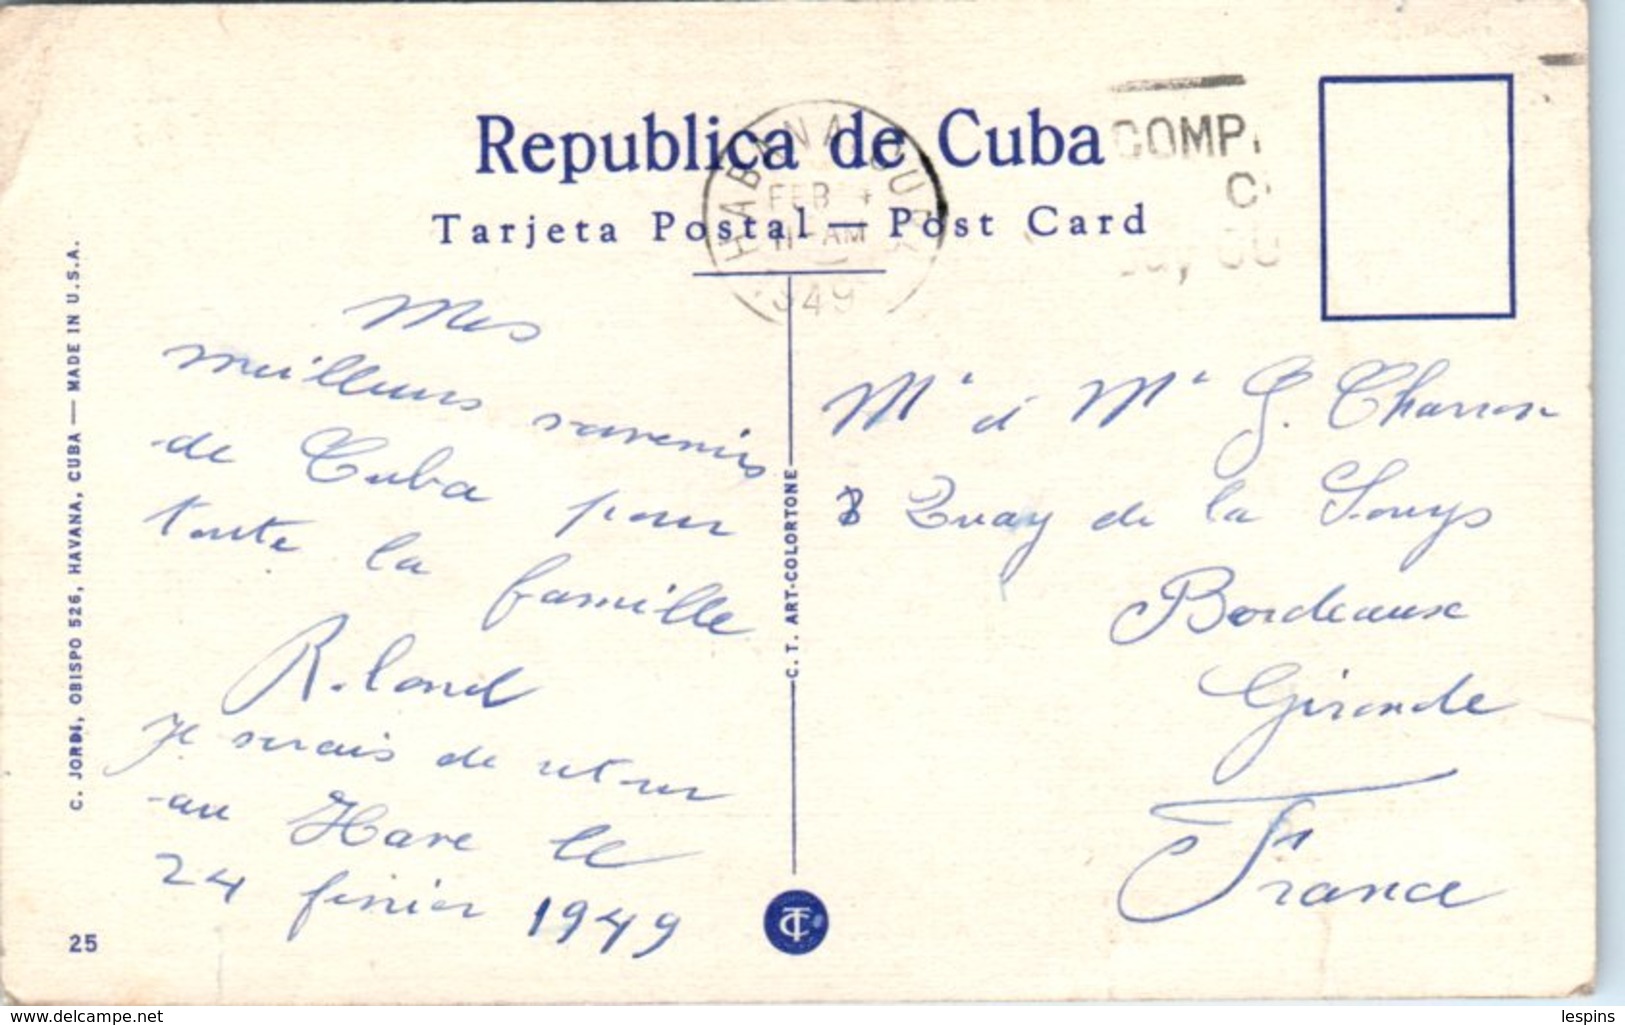 Republica de Cuba
Tarjeta Postal — Post Card
HABANA, CUBA
FEB 4
11-AM
1949
COMP
C. JORDI, OBISPO 526, HAVANA, CUBA — MADE IN U.S.A.
Mes
meilleurs souvenirs
de Cuba pour
toute la famille
Roland
Je serais de retour
au Havre le
24 février 1949
25
C. T. ART-COLORTONE
CT
Mr et Mr G. Charron
8 Quay de la Souys
Bordeaux
Gironde
France
www.delcampe.net
lespins